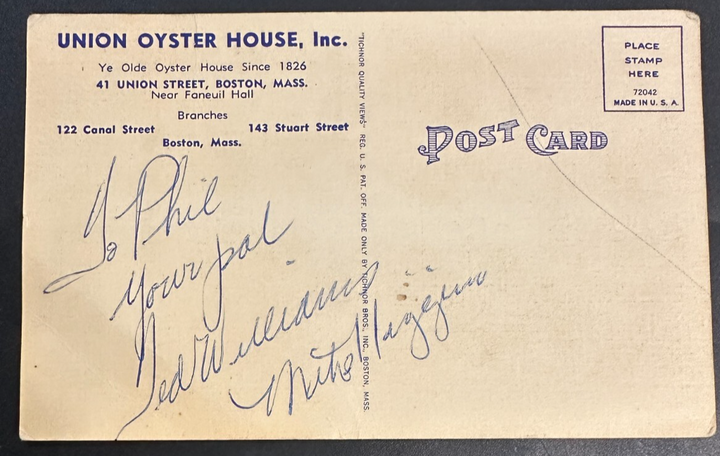 UNION OYSTER HOUSE, Inc.
Ye Olde Oyster House Since 1826
41 UNION STREET, BOSTON, MASS.
Near Faneuil Hall
Branches
122 Canal Street 143 Stuart Street
Boston, Mass.
To Phil
Your pal
Ted Williams
Mike Higgins
"TICHNOR QUALITY VIEWS" REG. U. S. PAT. OFF. MADE ONLY BY TICHNOR BROS., INC., BOSTON, MASS.
POST CARD
PLACE
STAMP
HERE
72042
MADE IN U. S. A.